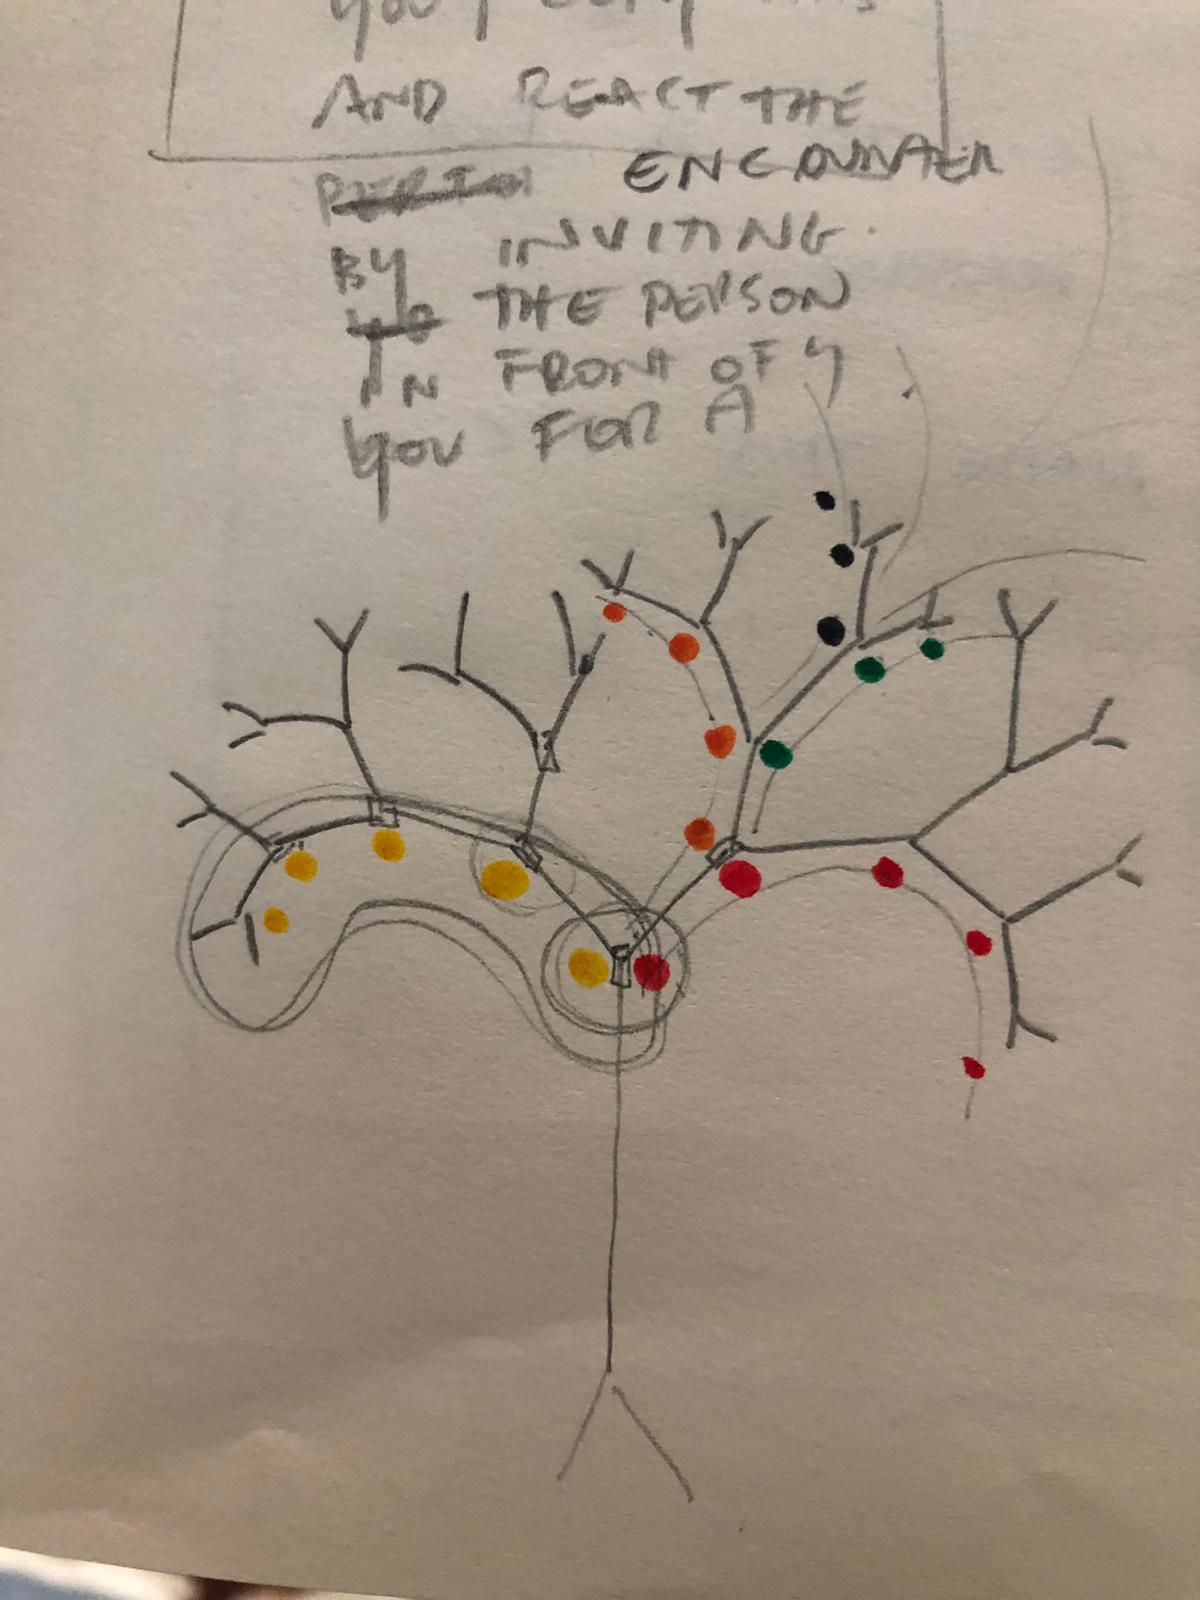 AND REACT THE
ENCOUNTER
BY INVITING.
THE PERSON
IN FRONT OF
YOU FOR A